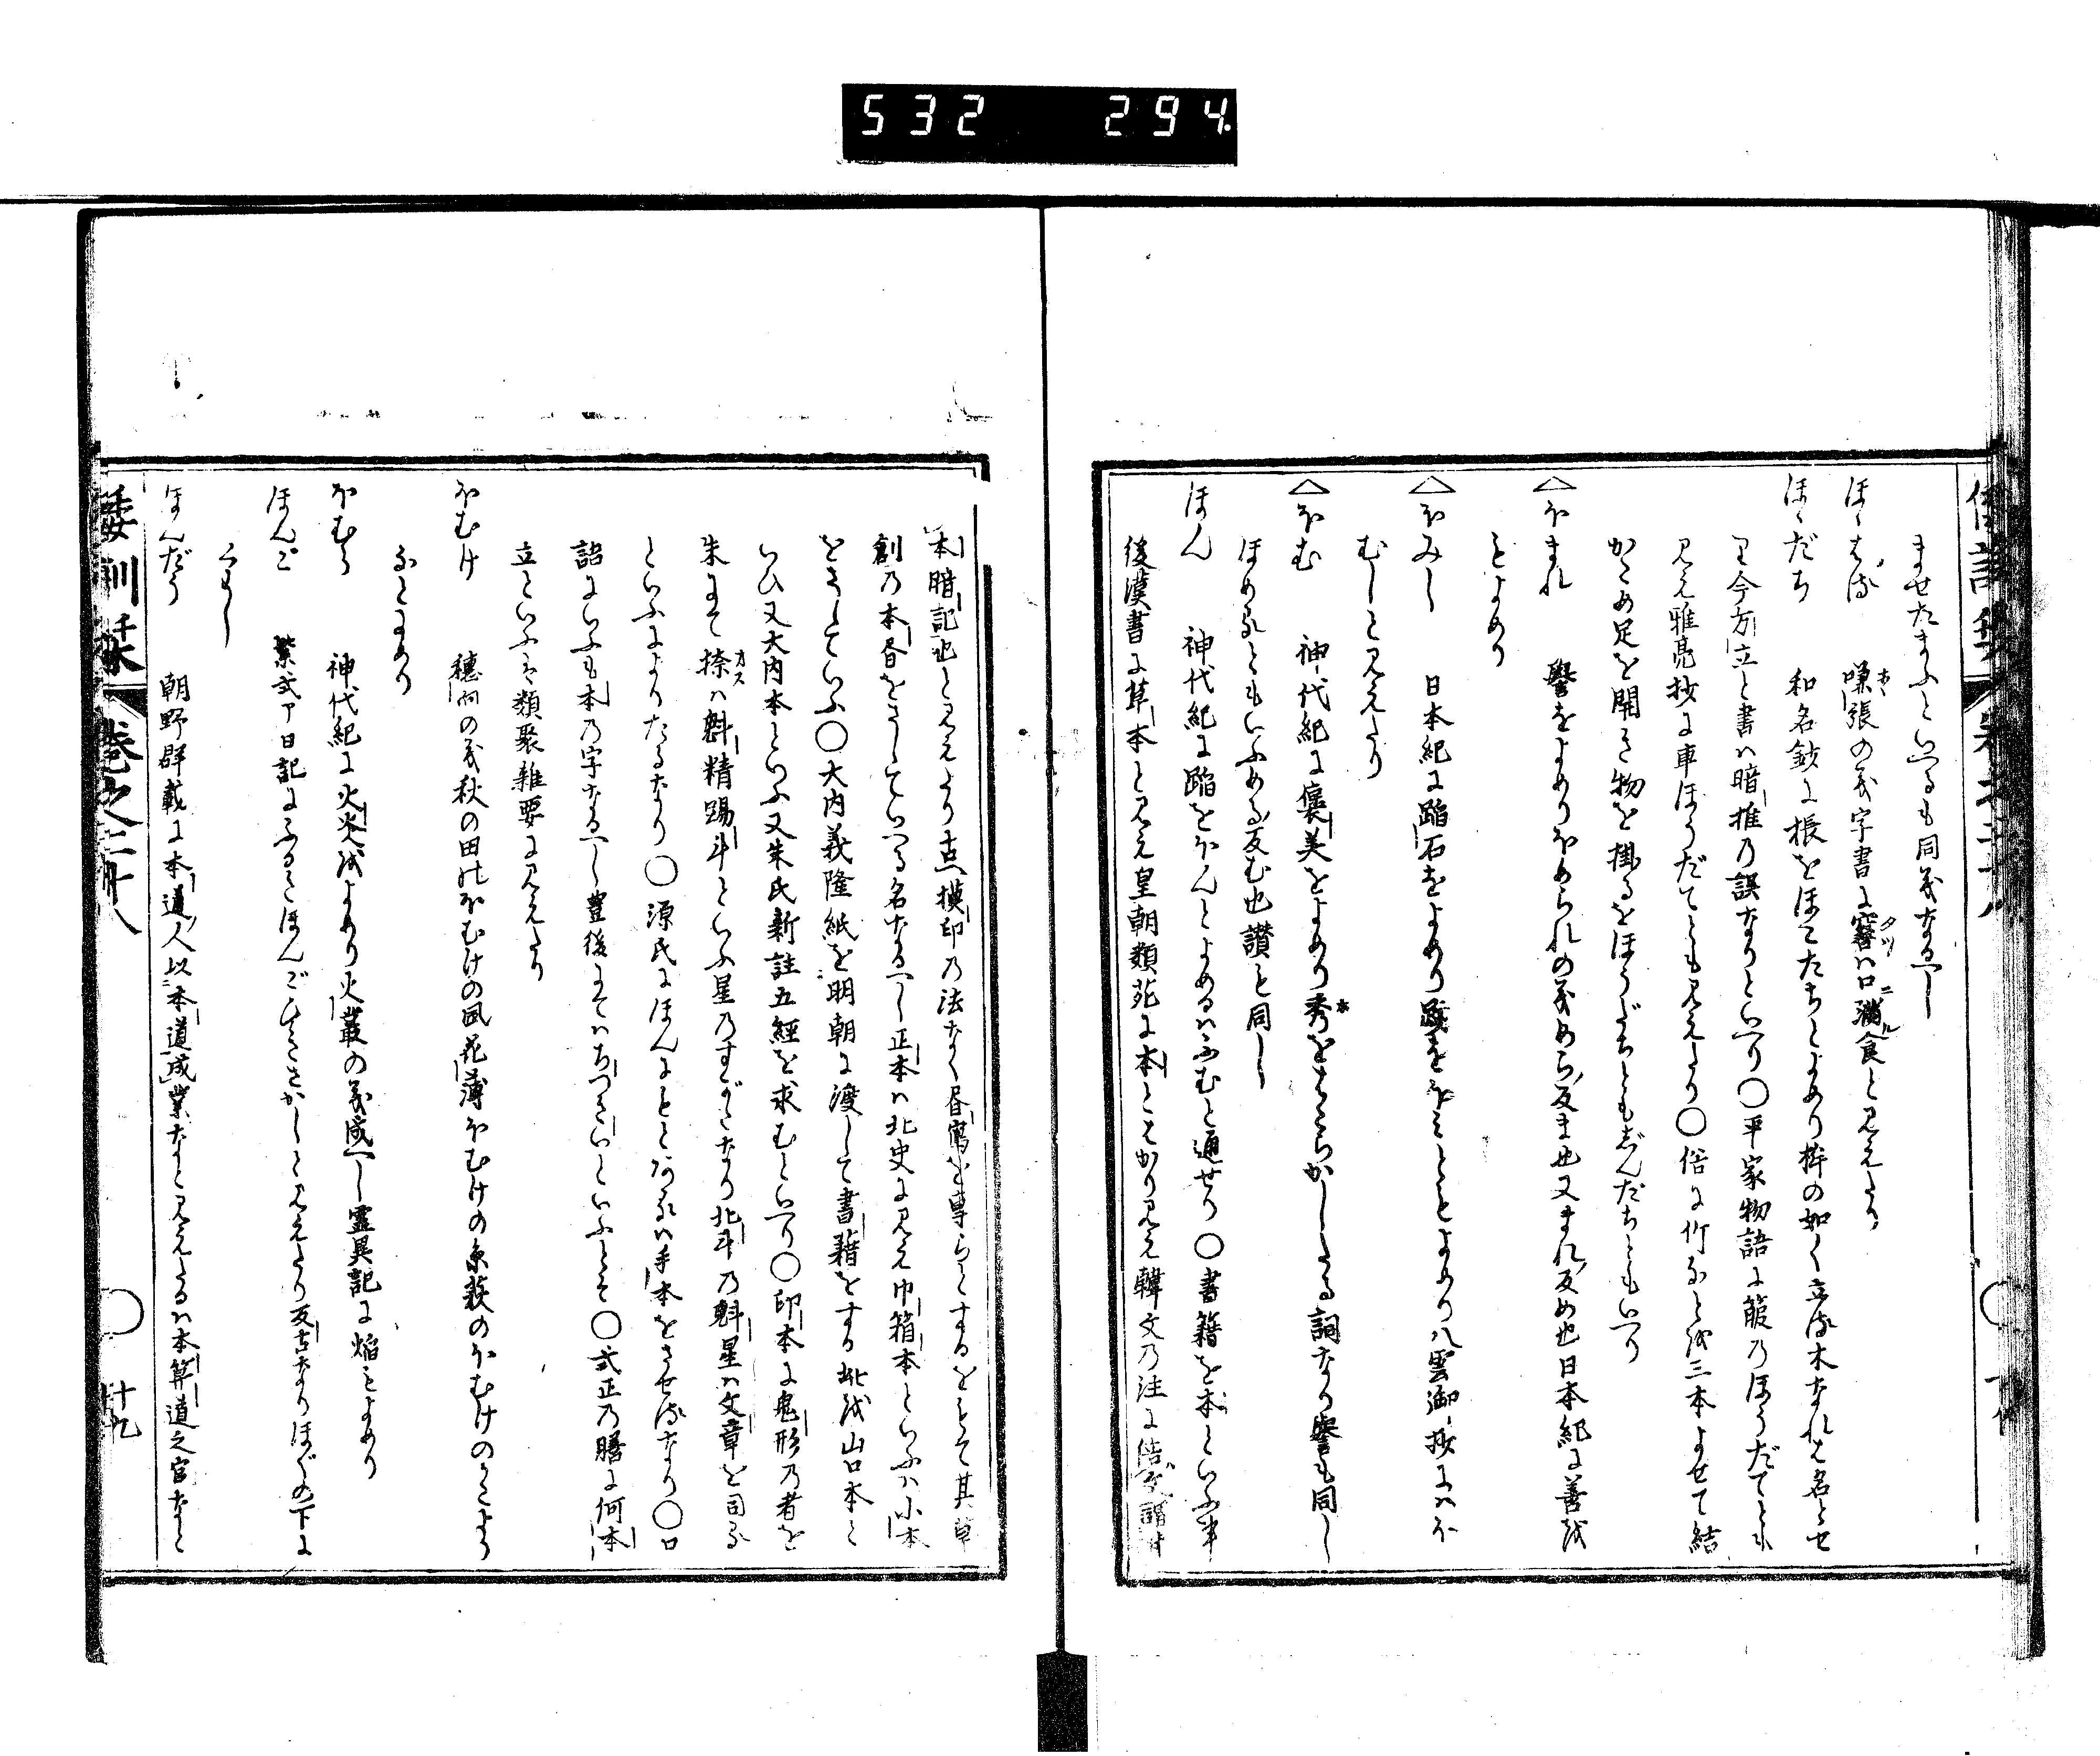 532 294
ませたまふといへるも同義なるへし
ほゝはる 嗛張の義字書に窶ハ口滿食と見えたり
ほゝだち 和名鈔に棖をほこたちとよめり桙の如く立る木なれは名とせ
り今方立と書ハ暗推の誤なりといへり〇平家物語に箙乃ほうだてとも
見え雅亮抄に車ほうだてとも見えたり〇俗に竹なとを三本よせて結
かため足を開き物を掛るをほうだちともぢんだちともいへり
△ほまれ 譽をよめりほめられの義めら反ま也又まれ反め也日本紀に善を
もよめり
△ほみし 日本紀に蹈石をよめり蹶をほみことよめり八雲御抄にハほ
むしと見えたり
△ほむ 神代紀に褒美をよめり秀をはたらかしたる詞なり譽も同し
ほめるともいふめる反む也讃も同し
ほん 神代紀に蹈をほんとよめるハふむと通せり〇書籍を本といふ事
後漢書に草本と見え皇朝類苑に本とはかり見え韓文乃注に
本暗記也と見えたり古へ摸印乃法なく昼寫を專らとするをもて其草
創乃本昼をさしていへる名なるへし正本ハ北史に見え巾箱本といふハ小本
をさしていふ〇大内義隆紙を明朝に渡して書籍をする此を山口本と
いひ又大内本といふ又朱氏新註五經を求むといへり〇印本に鬼形乃者を
朱にて捺ハ魁精踢斗といふ星乃すがたなり北斗乃魁星ハ文章を司る
といふによりたるなり〇源氏にほんにもとあるハ手本をさせるなり〇口
語にいふも本乃字なるへし豊後にてハぢつさいといふとそ〇式正乃膳に何本
立といふも類聚雜要に見えたり
ほむけ 穗向の義秋の田のほむけの風花薄ほむけの糸萩のほむけのかたより
なとよめり
ほむら 神代紀に火炎をよめり火叢の義成へし靈異記に焔もよめり
ほんご 紫式ア日記にふるきほんごひきさかしと見えたり反古なりほぐの下に
くはし
ほんだう 朝野群載に本道人以本道成業なと見えたるハ本算道之官なと
倭訓栞 巻之二十八 〇 十九